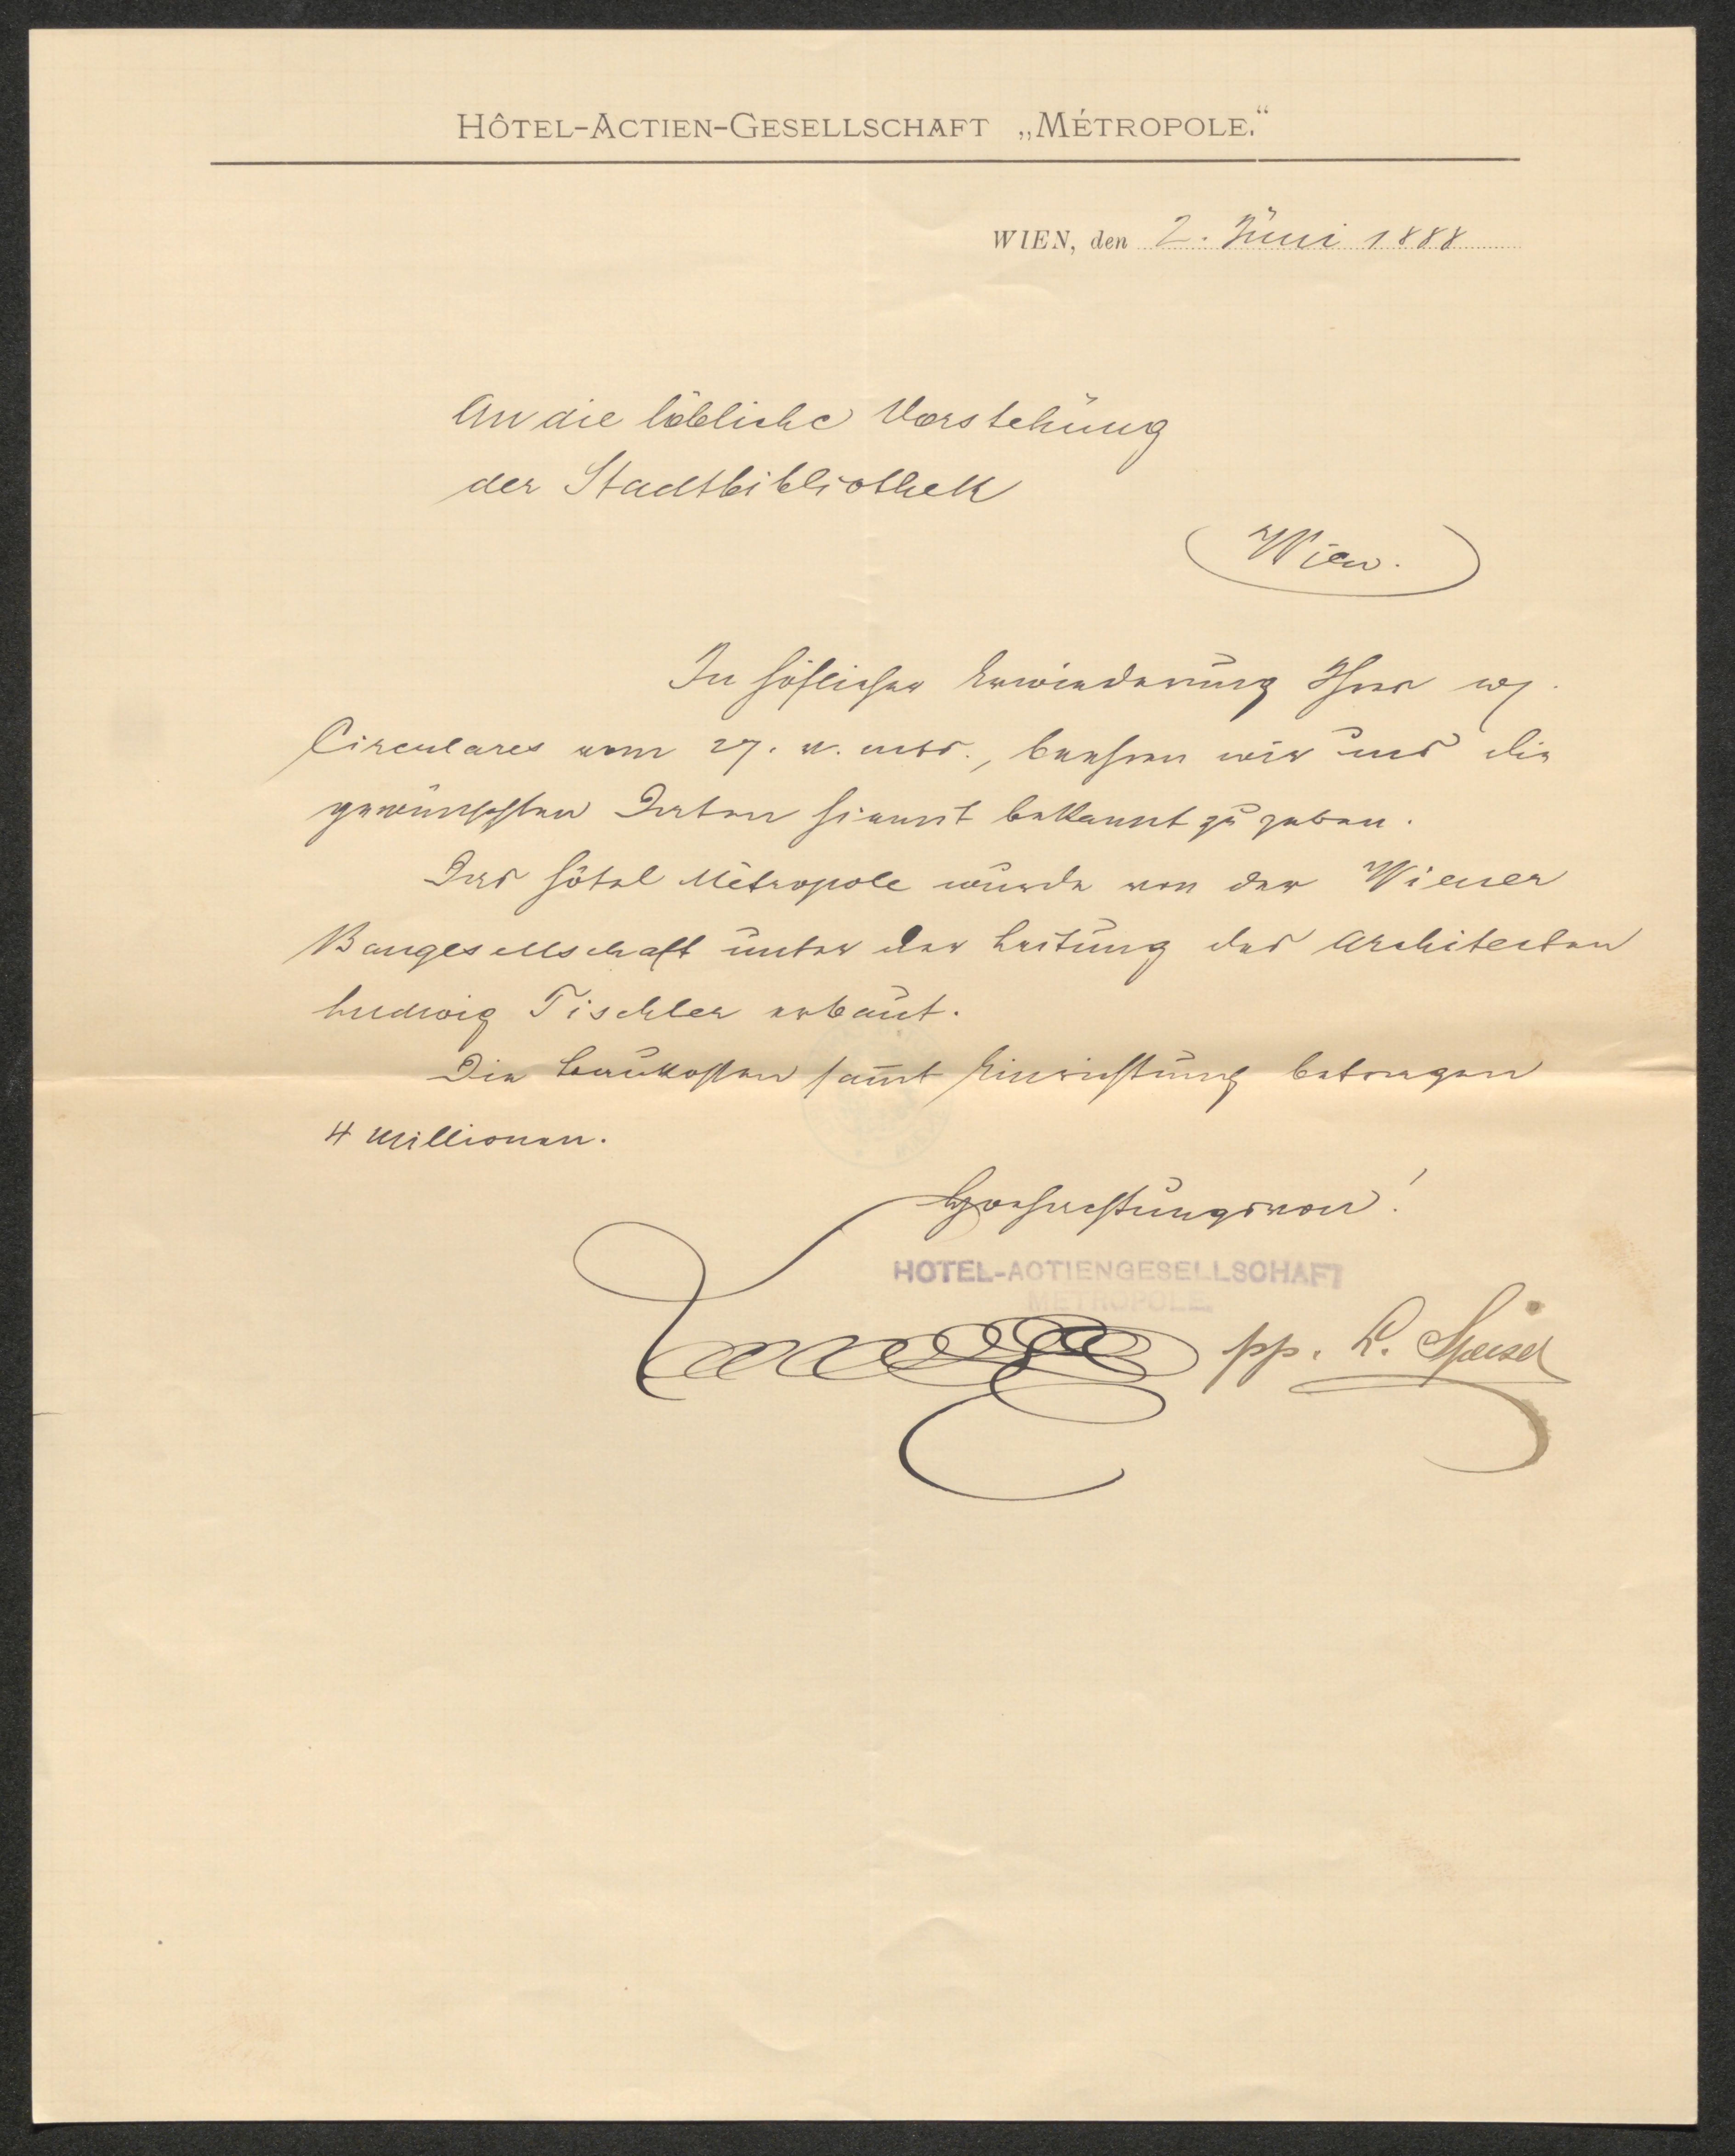 HÔTEL-ACTIEN-GESELLSCHAFT „MÉTROPOLE.“
WIEN, den 2. Juni 1888
An die löbliche Vorstehung
der Stadtbibliothek
Wien.
In höflicher Erwiederung Ihres
Circulares vom 27. v. mts., beehren wir uns die
gewünschten Daten hiemit bekannt zu geben.
Das Hôtel Métropole wurde von der Wiener
Baugesellschaft unter der Leitung des Architecten
Ludwig Tischler erbaut.
Die Baukosten sam̅t Einrichtung betragen
4 Millionen.
Hochachtungsvoll!
HOTEL-ACTIENGESELLSCHAFT
METROPOLE.
pp. L. Speisel